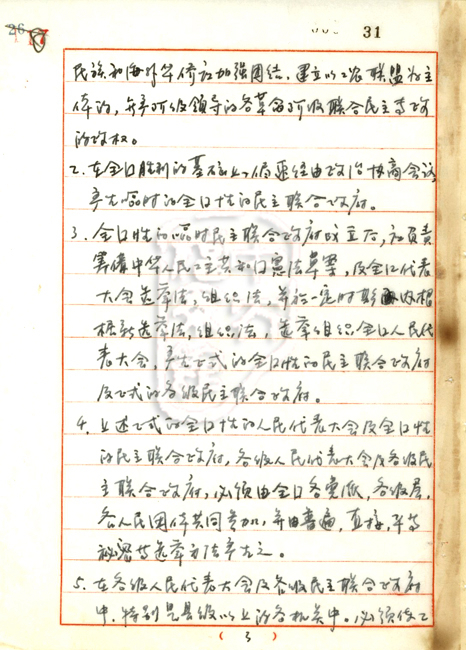 26
31
民族和海外华侨应加强团结，建立以工农联盟为主
体的，无产阶级领导的各革命阶级联合民主专政
的政权。
2. 在全囗胜利的基础上，迅速经由政治协商会议
产生临时的全囗性的民主联合政府。
3. 全囗性的临时民主联合政府成立后，应负责
筹备中华人民共和囗宪法草案，及全囗代表
大会选举法，组织法，并于一定时期内根
据新选举法，组织法，选举组织全囗人民代
表大会，产生正式的全囗性的民主联合政府
及正式的各级民主联合政府。
4. 上述正式的全囗性的人民代表大会及全囗性
的民主联合政府，各级人民代表大会及各级民
主联合政府，必须由全囗各党派，各阶层，
各人民团体共同参加，并由普遍，直接，平等
秘密等选举方法产生之。
5. 在各级人民代表大会及各级民主联合政府
中，特别是县级以上的各机关中。必须使工
(3)